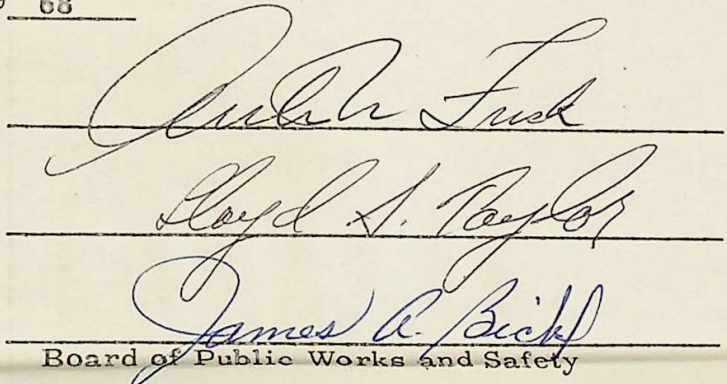 68
Frisk
Lloyd S. Taylor
James A. Bickl
Board of Public Works and Safety